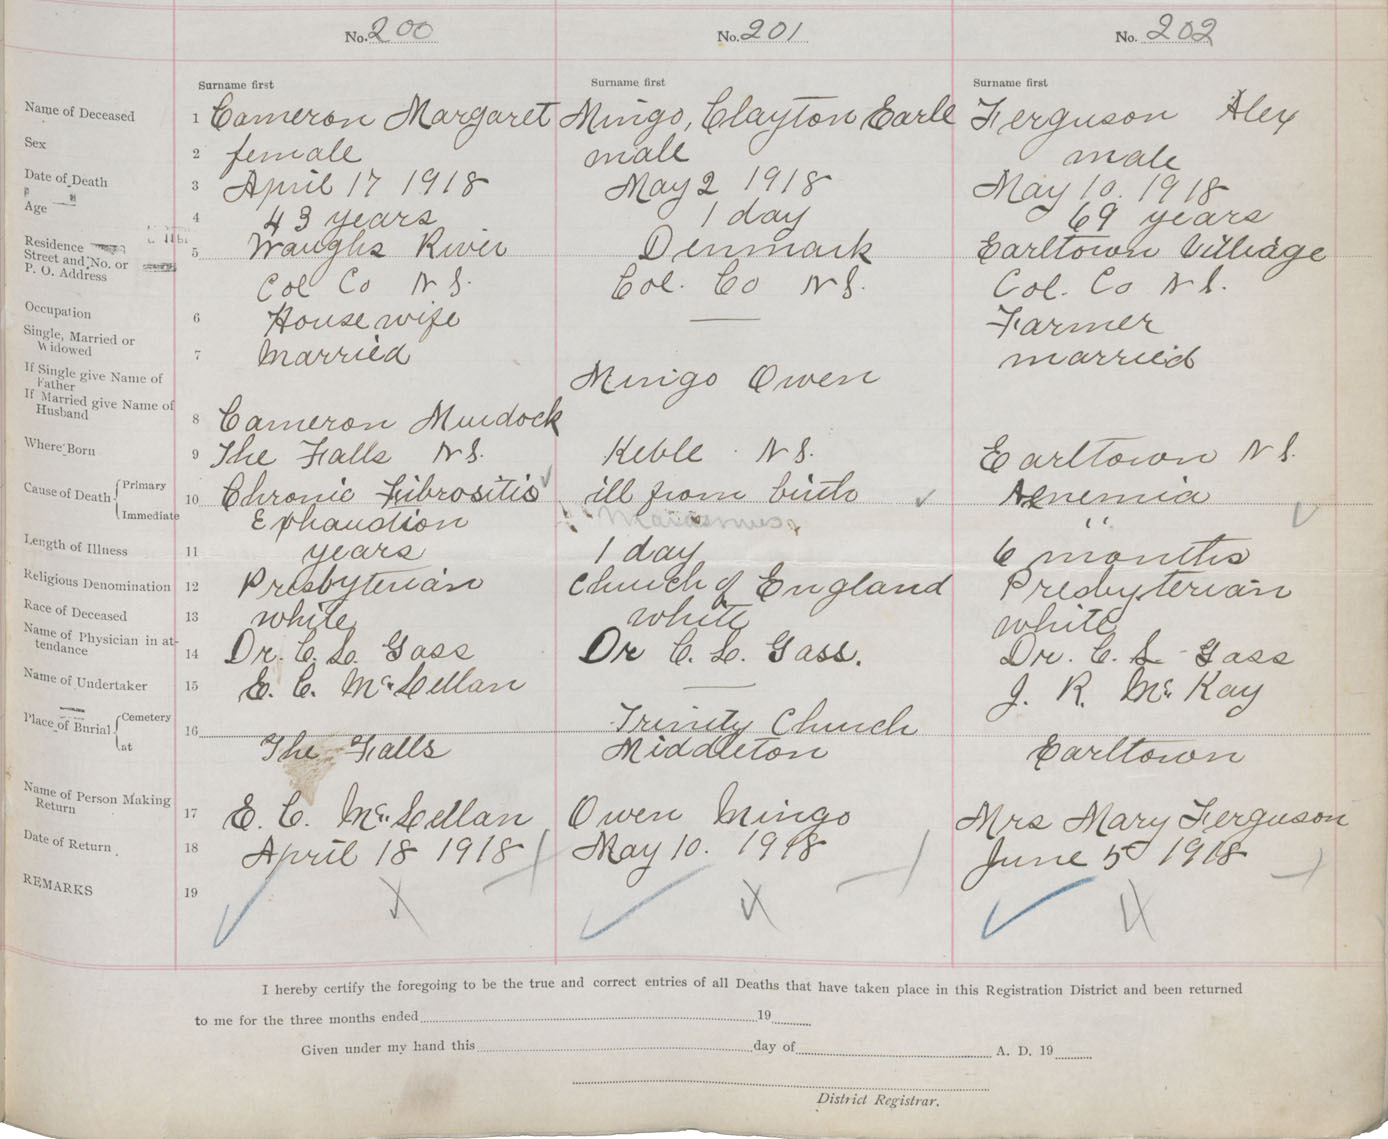 No. 200 No. 201 No. 202
Surname first Surname first Surname first
Name of Deceased 1 Cameron Margaret Mingo, Clayton Earle Ferguson Alex
Sex 2 female male male
Date of Death 3 April 17 1918 May 2 1918 May 10. 1918
Age 4 43 years 1 day 69 years
Residence 5 Waughs River Denmark Earltown Villiage
Street and No. or
P. O. Address Col Co N S. Col. Co N S. Col. Co N S.
Occupation 6 House wife — Farmer
Single, Married or
Widowed 7 Married married
If Single give Name of
Father Mingo Owen
If Married give Name of
Husband 8 Cameron Murdock
Where Born 9 The Falls N S. Keble N S. Earltown N S.
Cause of Death Primary 10 Chronic Fibrositis ill from birth Anemia
Immediate Exhaustion Marasmus "
Length of Illness 11 years 1 day 6 months
Religious Denomination 12 Presbyterian Church of England Presbyterian
Race of Deceased 13 white white white
Name of Physician in at-
tendance 14 Dr. C. L. Gass Dr C. L. Gass. Dr. C. L Gass
Name of Undertaker 15 E. C. McLellan — J. R. McKay
Place of Burial Cemetery 16 Trinity Church
at The Falls Middleton Earltown
Name of Person Making
Return 17 E. C. McLellan Owen Mingo Mrs Mary Ferguson
Date of Return 18 April 18 1918 May 10. 1918 June 5 1918
REMARKS 19
I hereby certify the foregoing to be the true and correct entries of all Deaths that have taken place in this Registration District and been returned
to me for the three months ended 19
Given under my hand this day of A. D. 19
District Registrar.